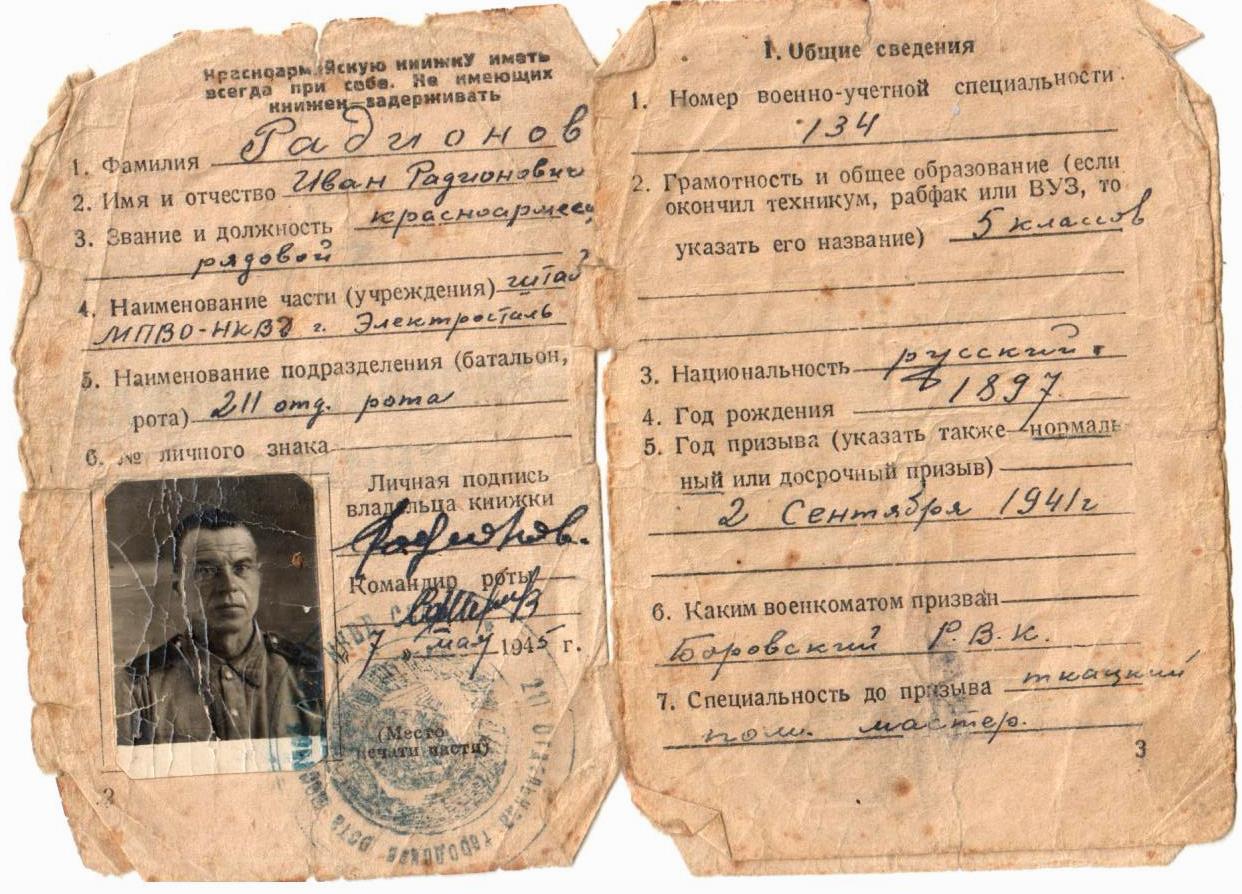 Красноармейскую книжку иметь
всегда при себе. Не имеющих
книжек—задерживать
1. Фамилия Радионов
2. Имя и отчество Иван Радионович
3. Звание и должность красноармеец
рядовой
4. Наименование части (учреждения) штаб
МПВО-НКВД г. Электросталь
5. Наименование подразделения (батальон,
рота) 211 отд. рота
6. № личного знака
Личная подпись
владельца книжки
Радионов.
Командир роты
"7" мая 1945 г.
(Место
печати части)
211 отдельная городская рота
2
I. Общие сведения
1. Номер военно-учетной специальности
134
2. Грамотность и общее образование (если
окончил техникум, рабфак или ВУЗ, то
указать его название) 5 классов
3. Национальность русский
4. Год рождения 1897
5. Год призыва (указать также нормаль-
ный или досрочный призыв)
2 Сентября 1941г
6. Каким военкоматом призван
Боровский Р.В.К.
7. Специальность до призыва ткацкий
пом. мастер.
3